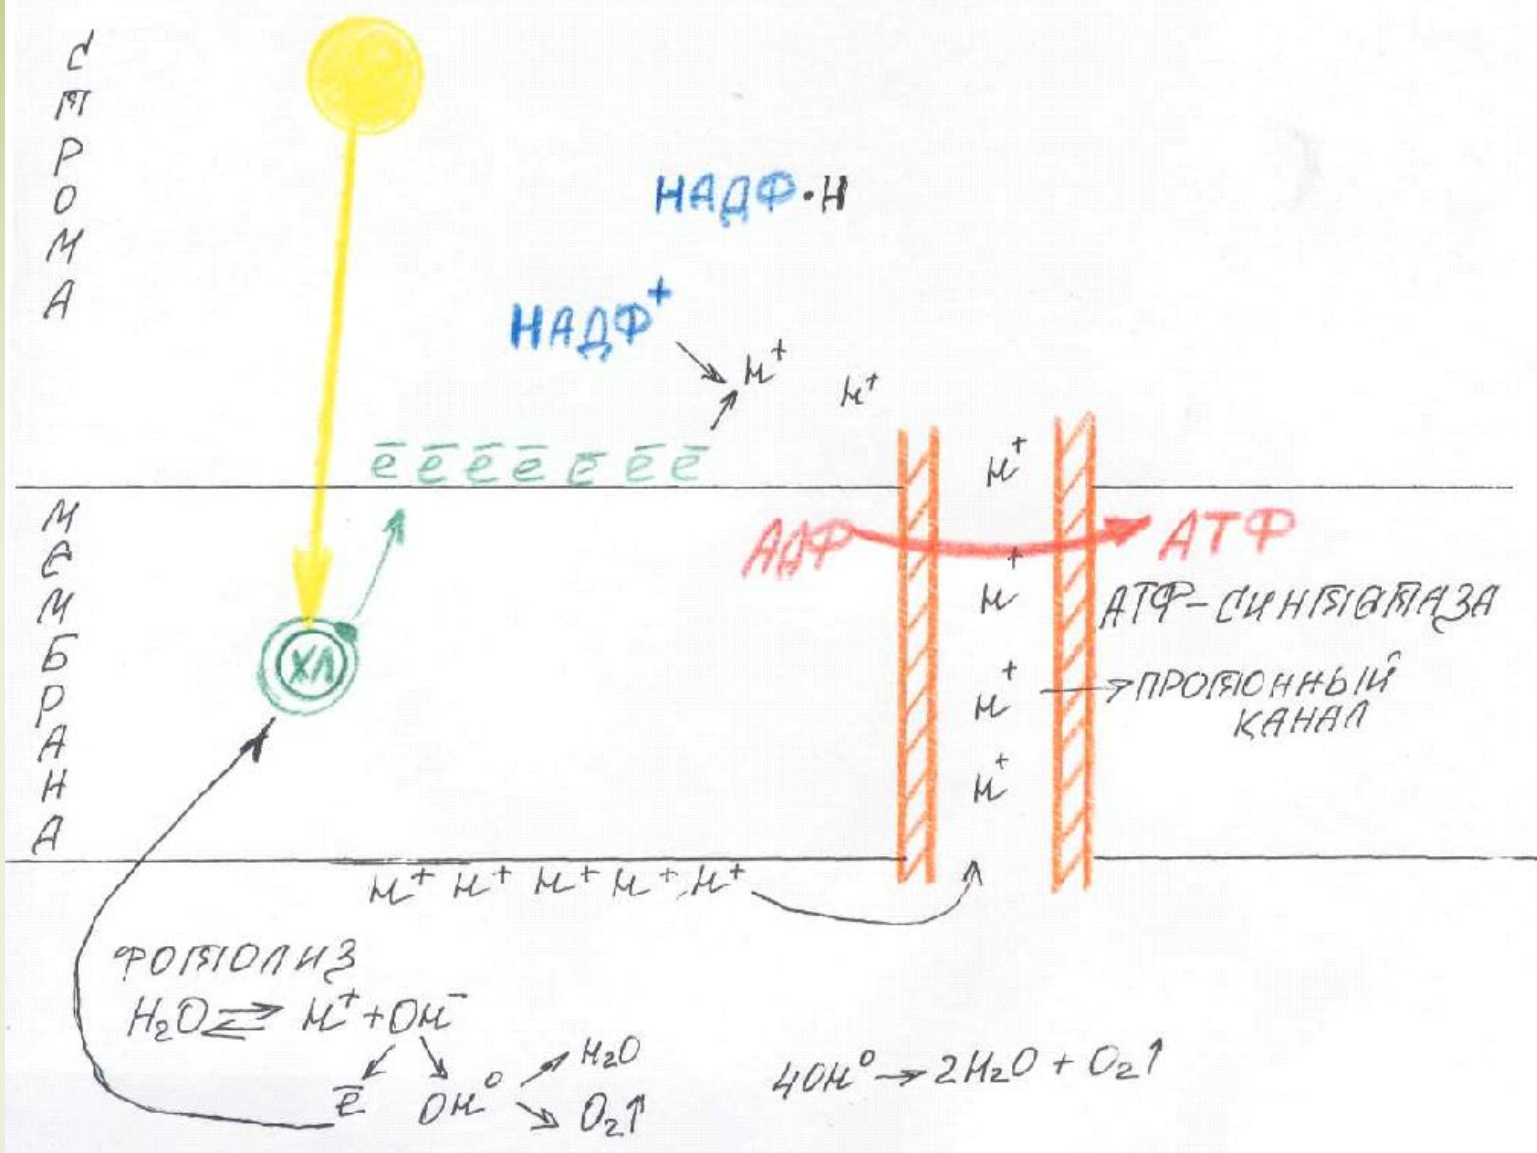 СТРОМА
НАДФ·Н
НАДФ⁺
H⁺ H⁺
ē ē ē ē ē ē ē
H⁺
МЕМБРАНА
АДФ АТФ
H⁺
АТФ-СИНТЕТАЗА
ХЛ
H⁺ ПРОТОННЫЙ
КАНАЛ
H⁺
H⁺ H⁺ H⁺ H⁺ H⁺
ФОТОЛИЗ
H₂O ⇄ H⁺ + OH⁻
ē OH⁰ H₂O
O₂↑
4OH⁰ → 2H₂O + O₂↑